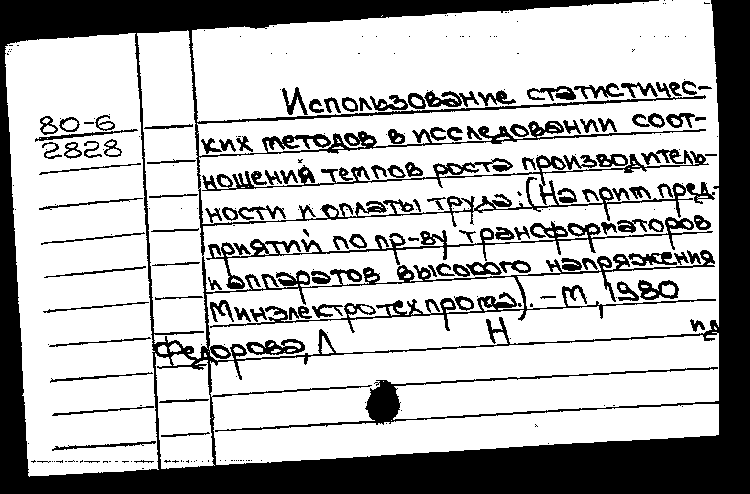 80-6
2828
Использование статистичес-
ких методов в исследовании соот-
ношений темпов роста производитель-
ности и оплаты труда: (На прим. пред-
приятий по пр-ву трансформаторов
и аппаратов высокого напряжения
Минэлектротехпрома). - М, 1980
Федорова, Л Н пл